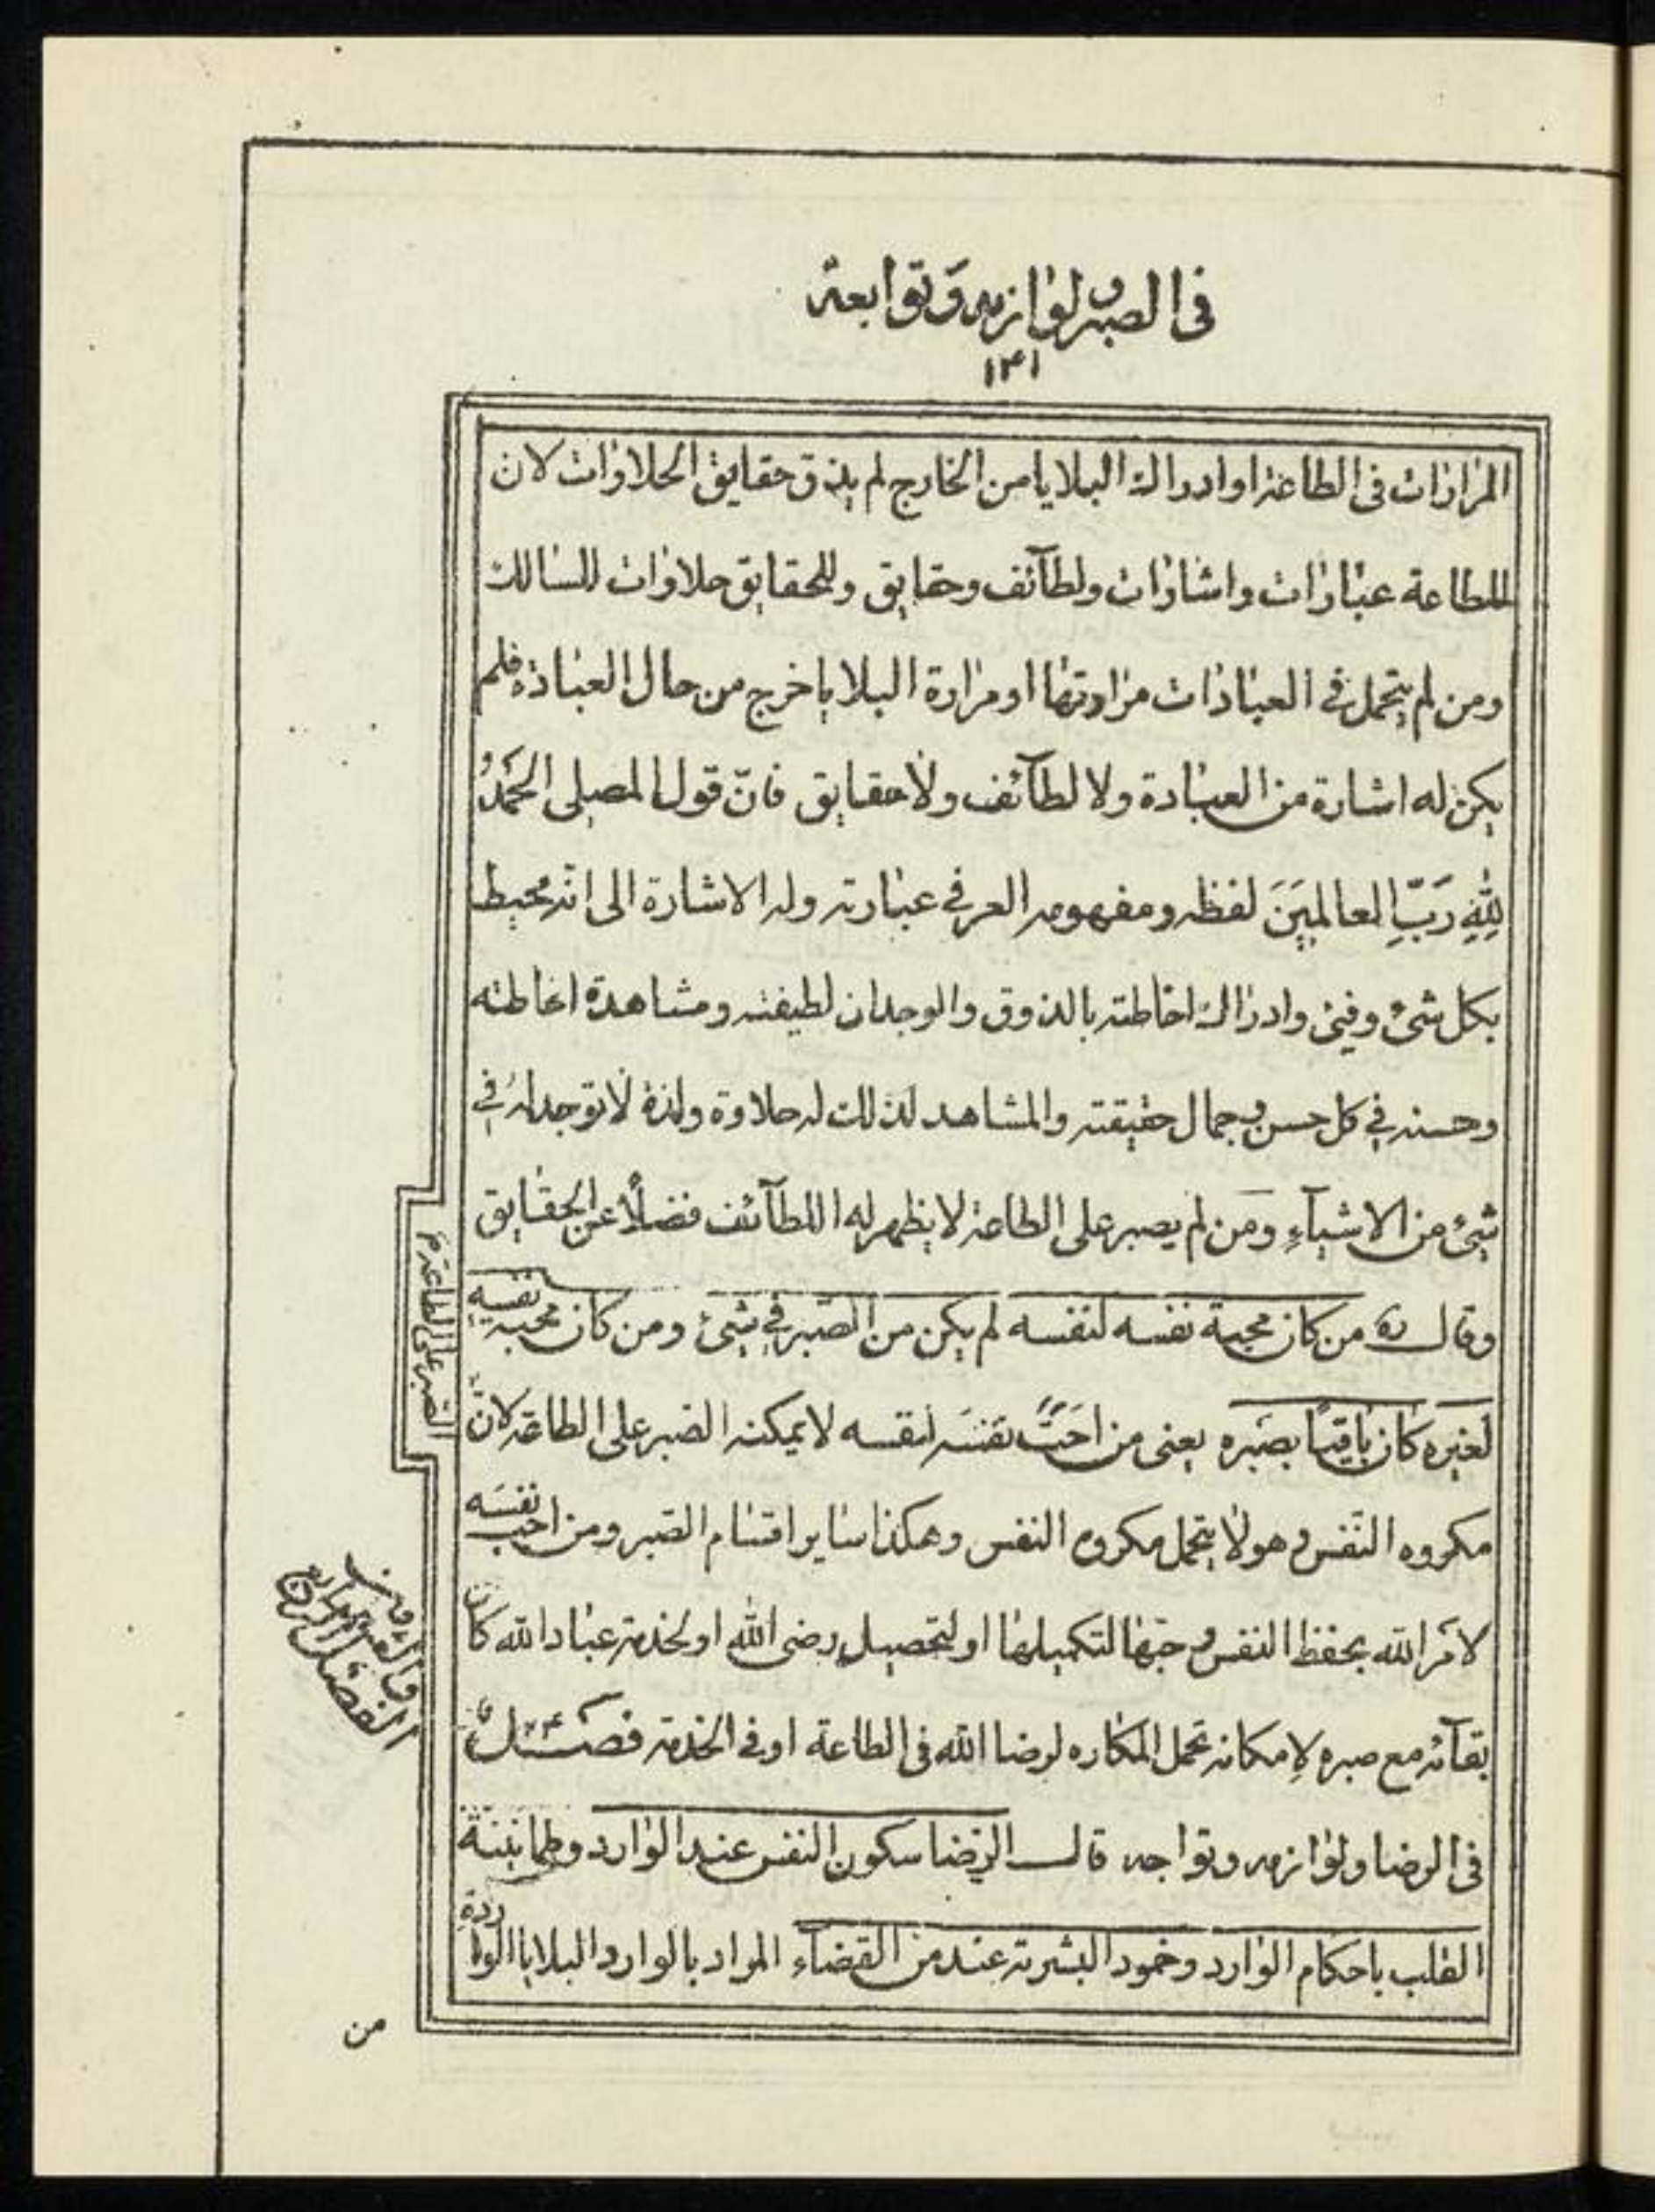 فى الصبر و لوازمه و توابعه
١٤١
المرارات فى الطاعة او ادراك البلايا من الخارج لم يذق حقايق الحلاوات لان
للطاعة عبارات واشارات ولطآئف وحقايق وللحقايق حلاوات للسالك
ومن لم يتحمل فى العبادات مرارتها او مرارة البلايا خرج من حال العبادة فلم
يكن له اشارة من العبادة ولا لطآئف ولا حقايق فانّ قول المصلى الحَمدُ
لِلّهِ رَبِّ العالمِينَ لفظه ومفهومه العرفى عبارته وله الاشارة الى انّه محيط
بكل شئ وفيئ وادراك احاطته بالذوق والوجدان لطيفته ومشاهدة احاطته
وحسنه فى كل حسن و جمال حقيقته والمشاهد لذلك له حلاوة ولذة لا توجد له فى
شئ من الاشيآءِ ومَن لم يصبر على الطاعة لا يظهر له اللطآئف فضلاً عن الحقايق
وقال ره من كان محبة نفسه لنفسه لم يكن من الصّبر فى شئ ومن كان محبه نفسِهِ
لغيره كان باقيًا بصَبره يعنى من احَبَّ نفسَه لنفسه لا يمكنه الصّبر على الطاعة لانّ
مكروه النّفس و هو لا يتحمل مكروه النفس وهكذا ساير اقسام الصّبر ومن احبّ نفسَه
لامر الله بحفظ النفس و حبّها لتكميلها او لتحصيل رضى الله او لخدمة عباد الله كان
بقآئه مع صبره لِامكانه تحمل المكاره لرضا الله فى الطاعة او فى الخدمة فصَــل
فى الرضا ولوازمه وتواجه قال الرّضا سكون النفس عند الوارد وطمانينة
القلب باحكام الوارد وخمود البشرية عند من القضآءِ المراد بالوارد البلايا الواردة
الصّبر على الطاعة م
الفصل
من